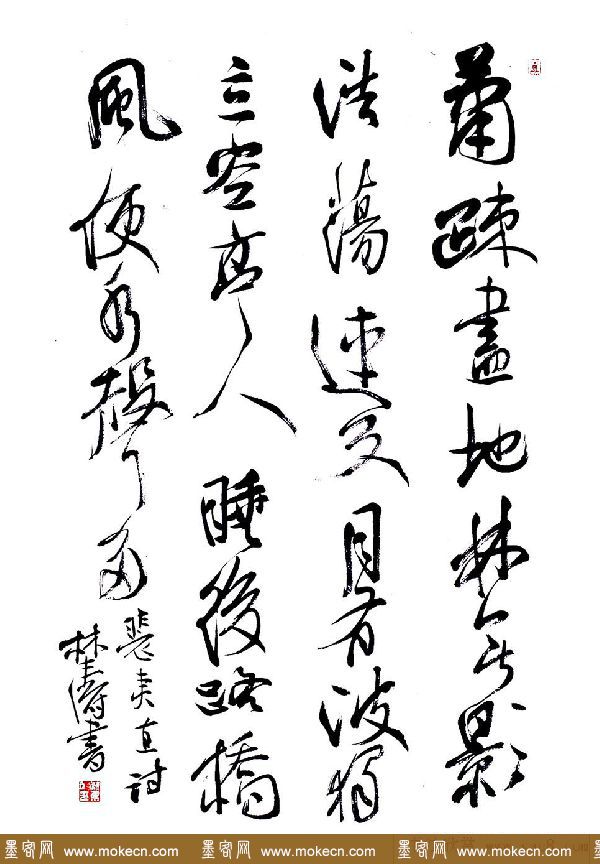 蕭疎盡地林無影
浩蕩連天月有波獨
立空亭人睡後路橋
風便水聲多
裴夷直詩
林濤書
墨客网 www.mokecn.com 墨客网 www.mokecn.com 墨客网 www.mokecn.com